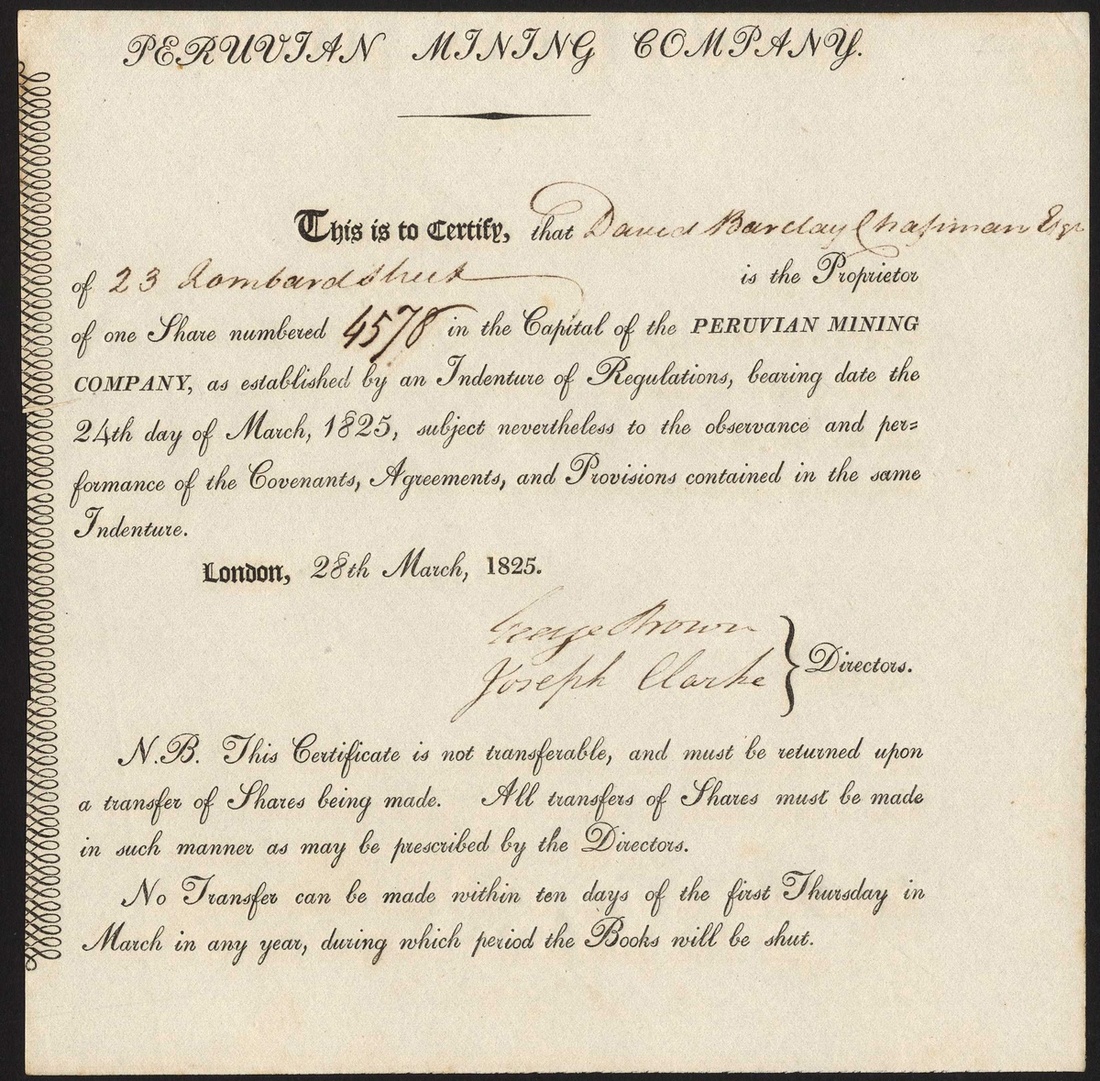 PERUVIAN MINING COMPANY.
This is to Certify, that David Barclay Chapman Esqr
of 23 Lombard Street is the Proprietor
of one Share numbered 4578 in the Capital of the PERUVIAN MINING
COMPANY, as established by an Indenture of Regulations, bearing date the
24th day of March, 1825, subject nevertheless to the observance and per=
formance of the Covenants, Agreements, and Provisions contained in the same
Indenture.
London, 28th March, 1825.
George Brown
Joseph Clarke
Directors.
N.B. This Certificate is not transferable, and must be returned upon
a transfer of Shares being made. All transfers of Shares must be made
in such manner as may be prescribed by the Directors.
No Transfer can be made within ten days of the first Thursday in
March in any year, during which period the Books will be shut.